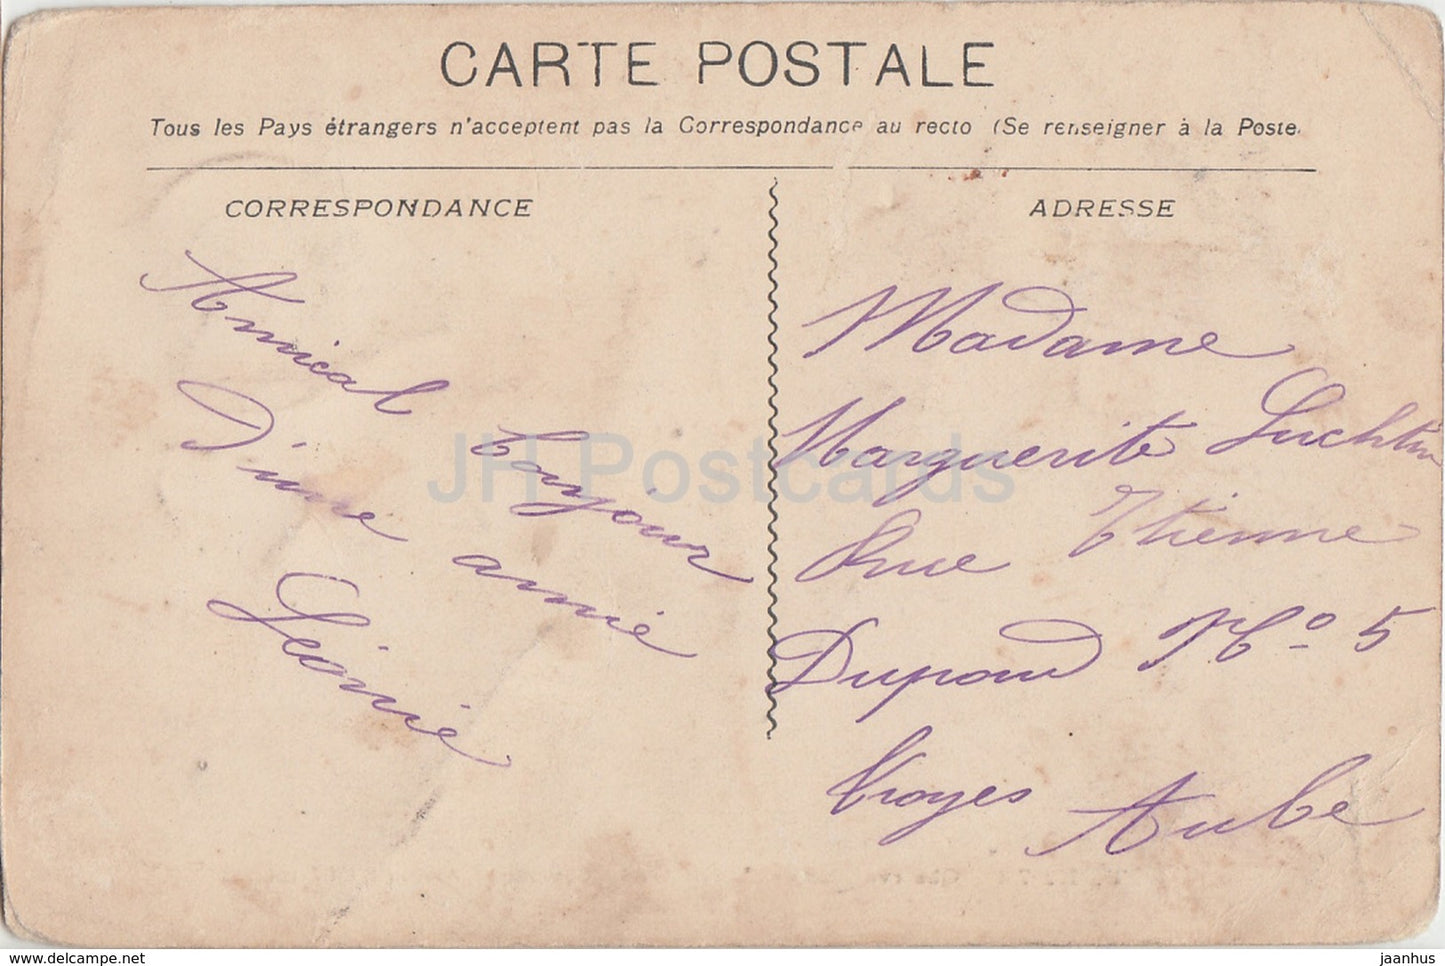 CARTE POSTALE
Tous les Pays étrangers n'acceptent pas la Correspondance au recto (Se renseigner à la Poste.
CORRESPONDANCE
Amical bonjour
D'une amie
Léonie
ADRESSE
Madame
Marguerite
Rue Etienne
Dupond No 5
Troyes Aube
JH Postcards
www.delcampe.net
jaanhus